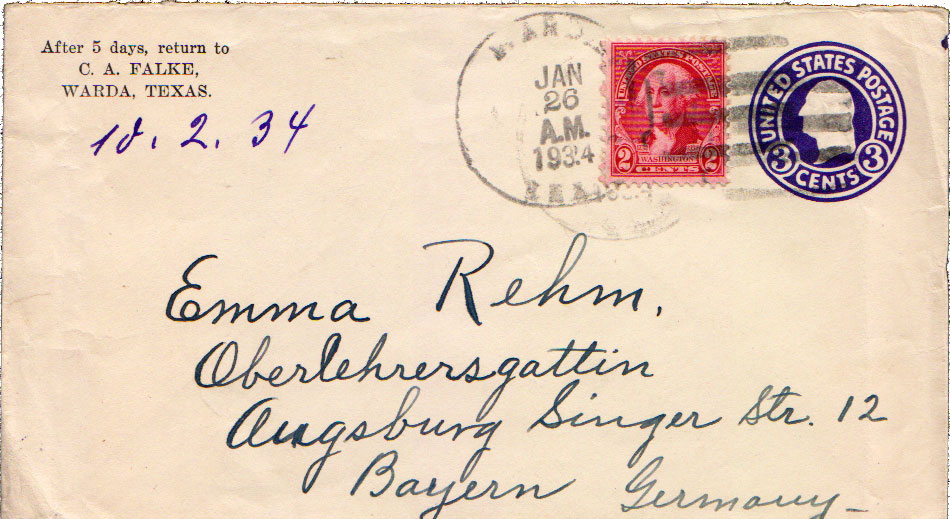 After 5 days, return to
C. A. FALKE,
WARDA, TEXAS.
10. 2. 34
WARDA
JAN
26
A.M.
1934
TEXAS
UNITED STATES POSTAGE
2 WASHINGTON 2
CENTS
UNITED STATES POSTAGE
3 CENTS 3
Emma Rehm,
Oberlehrersgattin
Augsburg Singer Str. 12
Bayern Germany